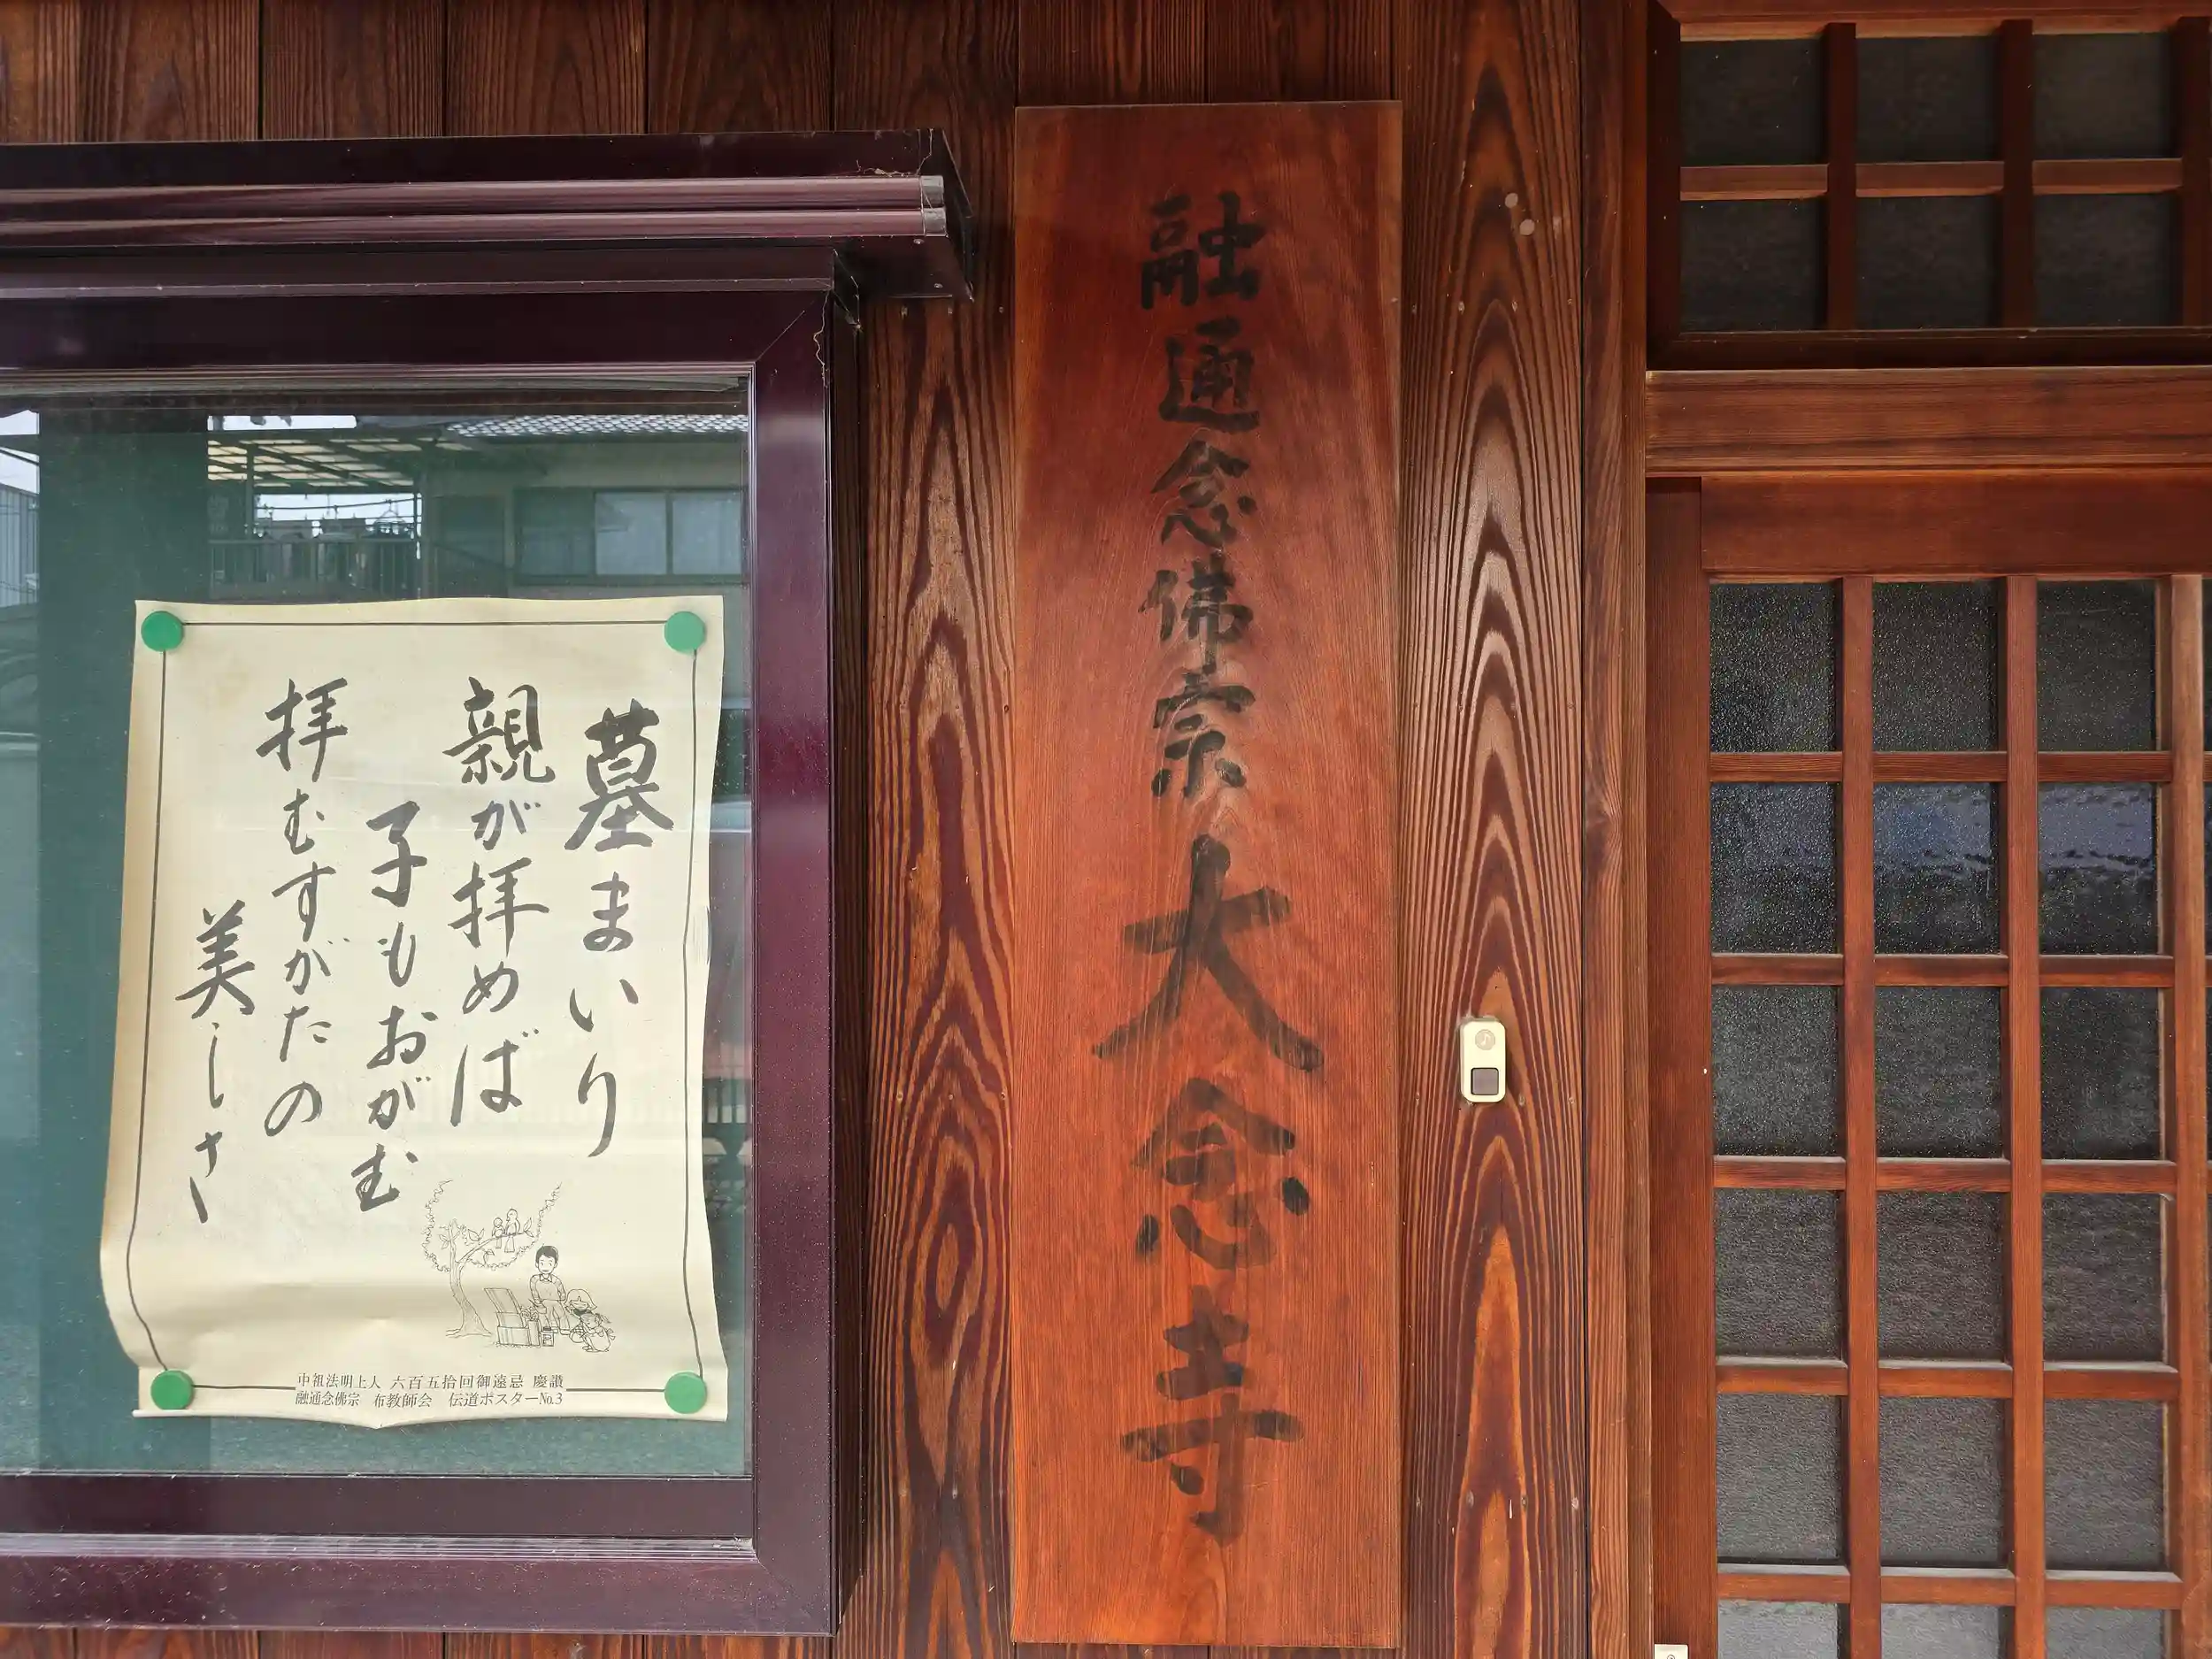 融通念佛宗大念寺
墓まいり
親が拝めば
子もおがむ
拝むすがたの
美しさ
中祖法明上人 六百五拾回御遠忌 慶讃
融通念佛宗 布教師会 伝道ポスターNo.3